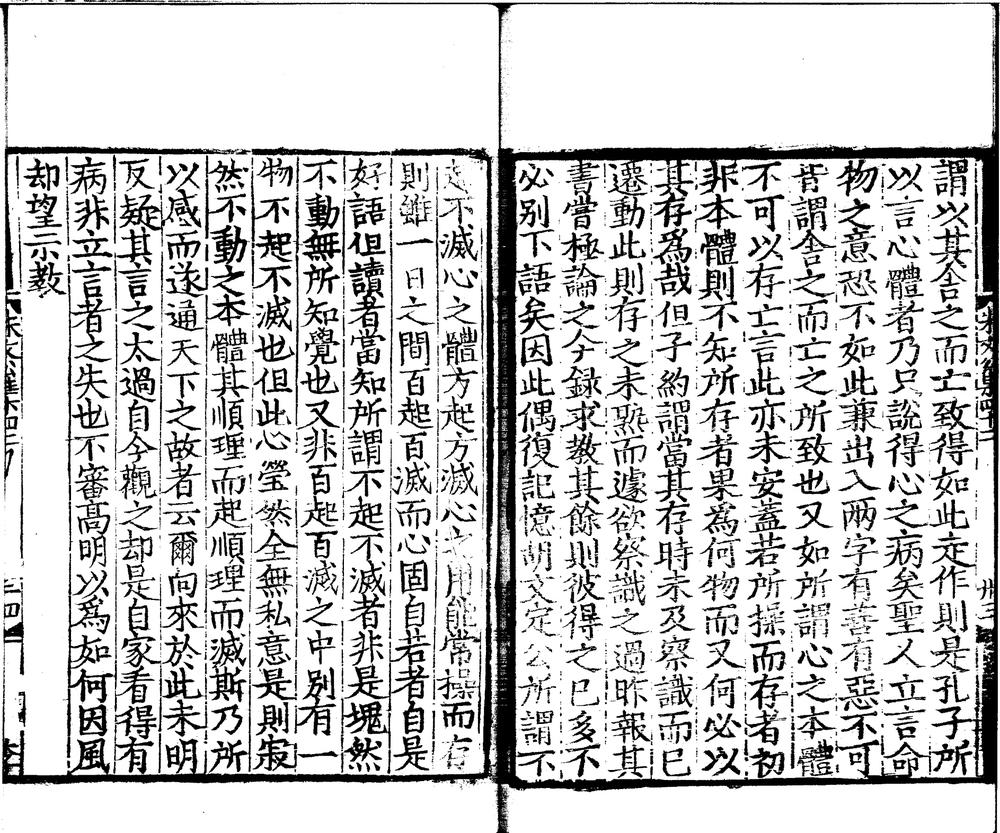 謂以其舍之而亡致得如此走作則是孔子所
以言心體者乃只說得心之病矣聖人立言命
物之意恐不如此兼出入兩字有善有惡不可
皆謂舍之而亡之所致也又如所謂心之本體
不可以存亡言此亦未安蓋若所操而存者初
非本體則不知所存者果爲何物而又何必以
其存爲哉但子約謂當其存時未及察識而已
遷動此則存之未熟而遽欲察識之過昨報其
書嘗極論之今錄求教其餘則彼得之已多不
必別下語矣因此偶復記憶胡文定公所謂不
起不滅心之體方起方滅心之用能常操而存
則雖一日之間百起百滅而心固自若者自是
好語但讀者當知所謂不起不滅者非是塊然
不動無所知覺也又非百起百滅之中別有一
物不起不滅也但此心瑩然全無私意是則寂
然不動之本體其順理而起順理而滅斯乃所
以感而遂通天下之故者云爾向來於此未明
反疑其言之太過自今觀之却是自家看得有
病非立言者之失也不審高明以爲如何因風
却望示教